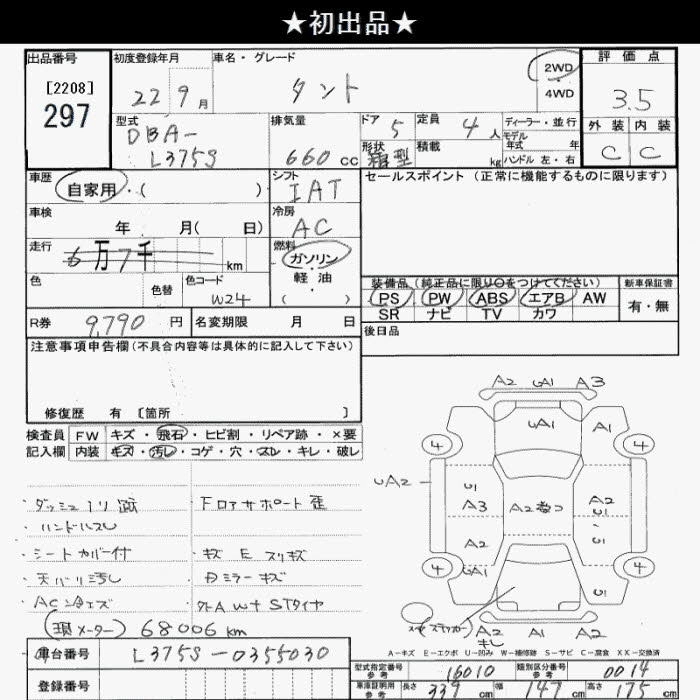 ★初出品★
出品番号
[2208]
297
初度登録年月
22 9 月
車名・グレード
タント
2WD
4WD
評価点
3.5
外装 内装
C C
型式
DBA-
L375S
排気量
660 cc
ドア
5
形状
箱型
定員
4 人
積載
kg
ディーラー・並行
モデル
年式 年
ハンドル 左・右
車歴
自家用・( )
シフト
IAT
セールスポイント (正常に機能するものに限ります)
車検
年 月( 日)
冷房
AC
走行
6万7千
km
燃料
ガソリン
・
軽油
( )
色
色替
色コード
W24
装備品 (純正品に限り○をつけてください)
PS PW ABS エアB AW
SR ナビ TV カワ
新車保証書
有・無
R券 9,790 円
名変期限 月 日
後日品
注意事項申告欄(不具合内容等は具体的に記入して下さい)
修復歴 有 [箇所 ]
検査員
記入欄
FW キズ・飛石・ヒビ割・リペア跡・×要
内装 キズ・汚レ・コゲ・穴・スレ・キレ・破レ
・ハンドルスレ
・シートカバー付
・キズ E スリキズ
・天バリ汚レ
・Dミラーキズ
(現メーター) 68006 km
車台番号 L375S-0355030
登録番号
A2 UA1 A3
UA1
A1
4 4
UA2
U1
A3
A2
A2
U1
U1
4 4
UA1
U1
A2 A1 A2
キレ
A-キズ E-エクボ U-凹み W-補修跡 S-サビ C-腐食 XX-交換済
型式指定番号
参考
16010
類別区分番号
参考
0014
車庫証明用
参考
長さ 339 cm 幅 147 cm 高さ 175 cm